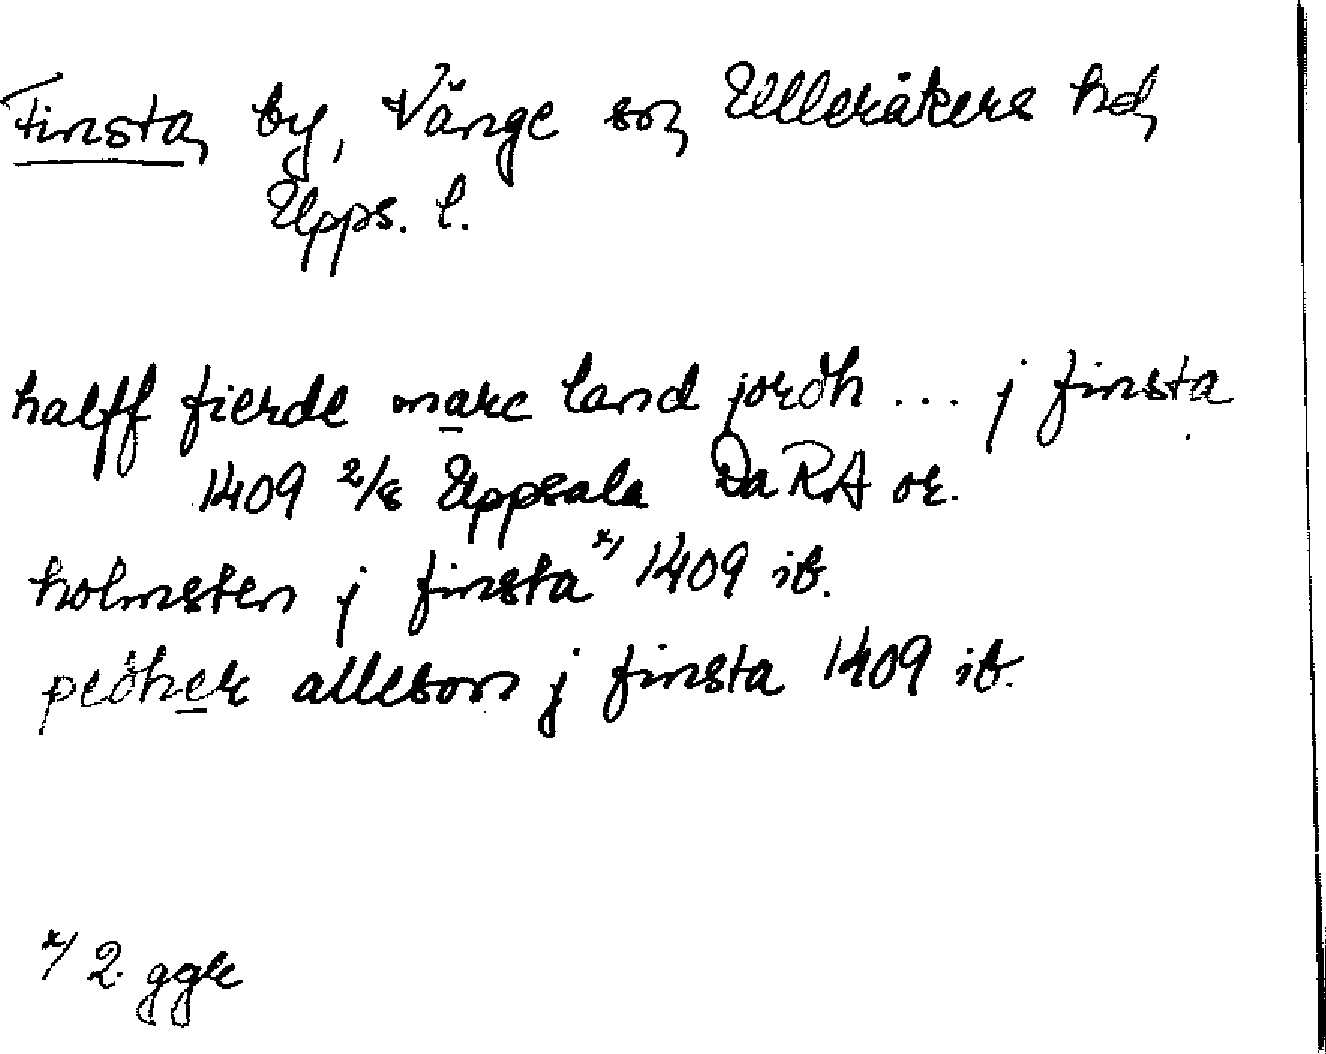 Finsta, by, Vänge sn, Ulleråkers hd,
Upps. l.
halff fierde marc land jordh ... j finsta
1409 2/8 Uppsala Da RA or.
holmsten j finsta x/ 1409 ib.
pedher alleson j finsta 1409 ib.
x/ 2 ggr